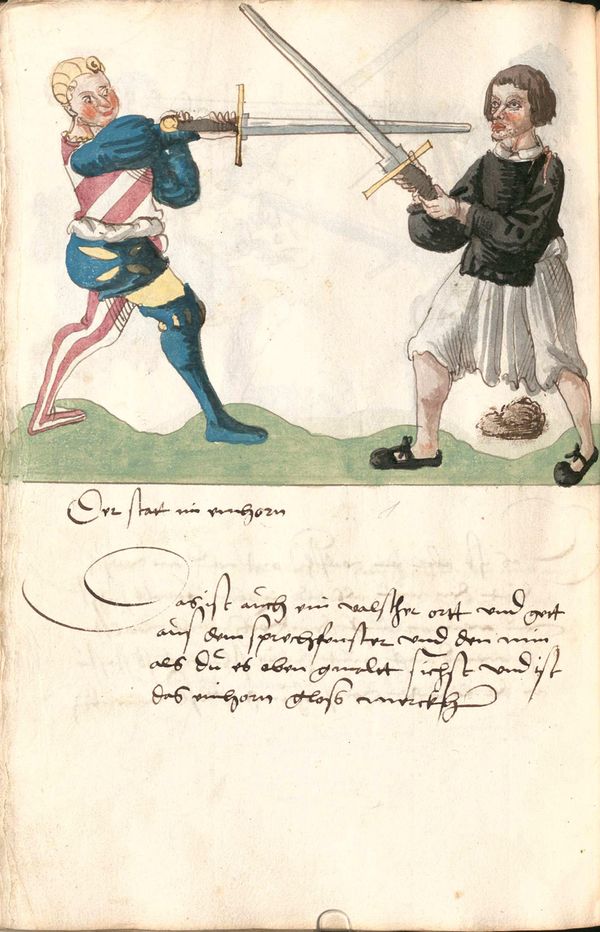 Der stat im einhorn
Das ist auch ein valscher ortt und gett
aus dem sprechfenster und den nim
als du es eben gmalet sichst und ist
das einhorn glosß merckh